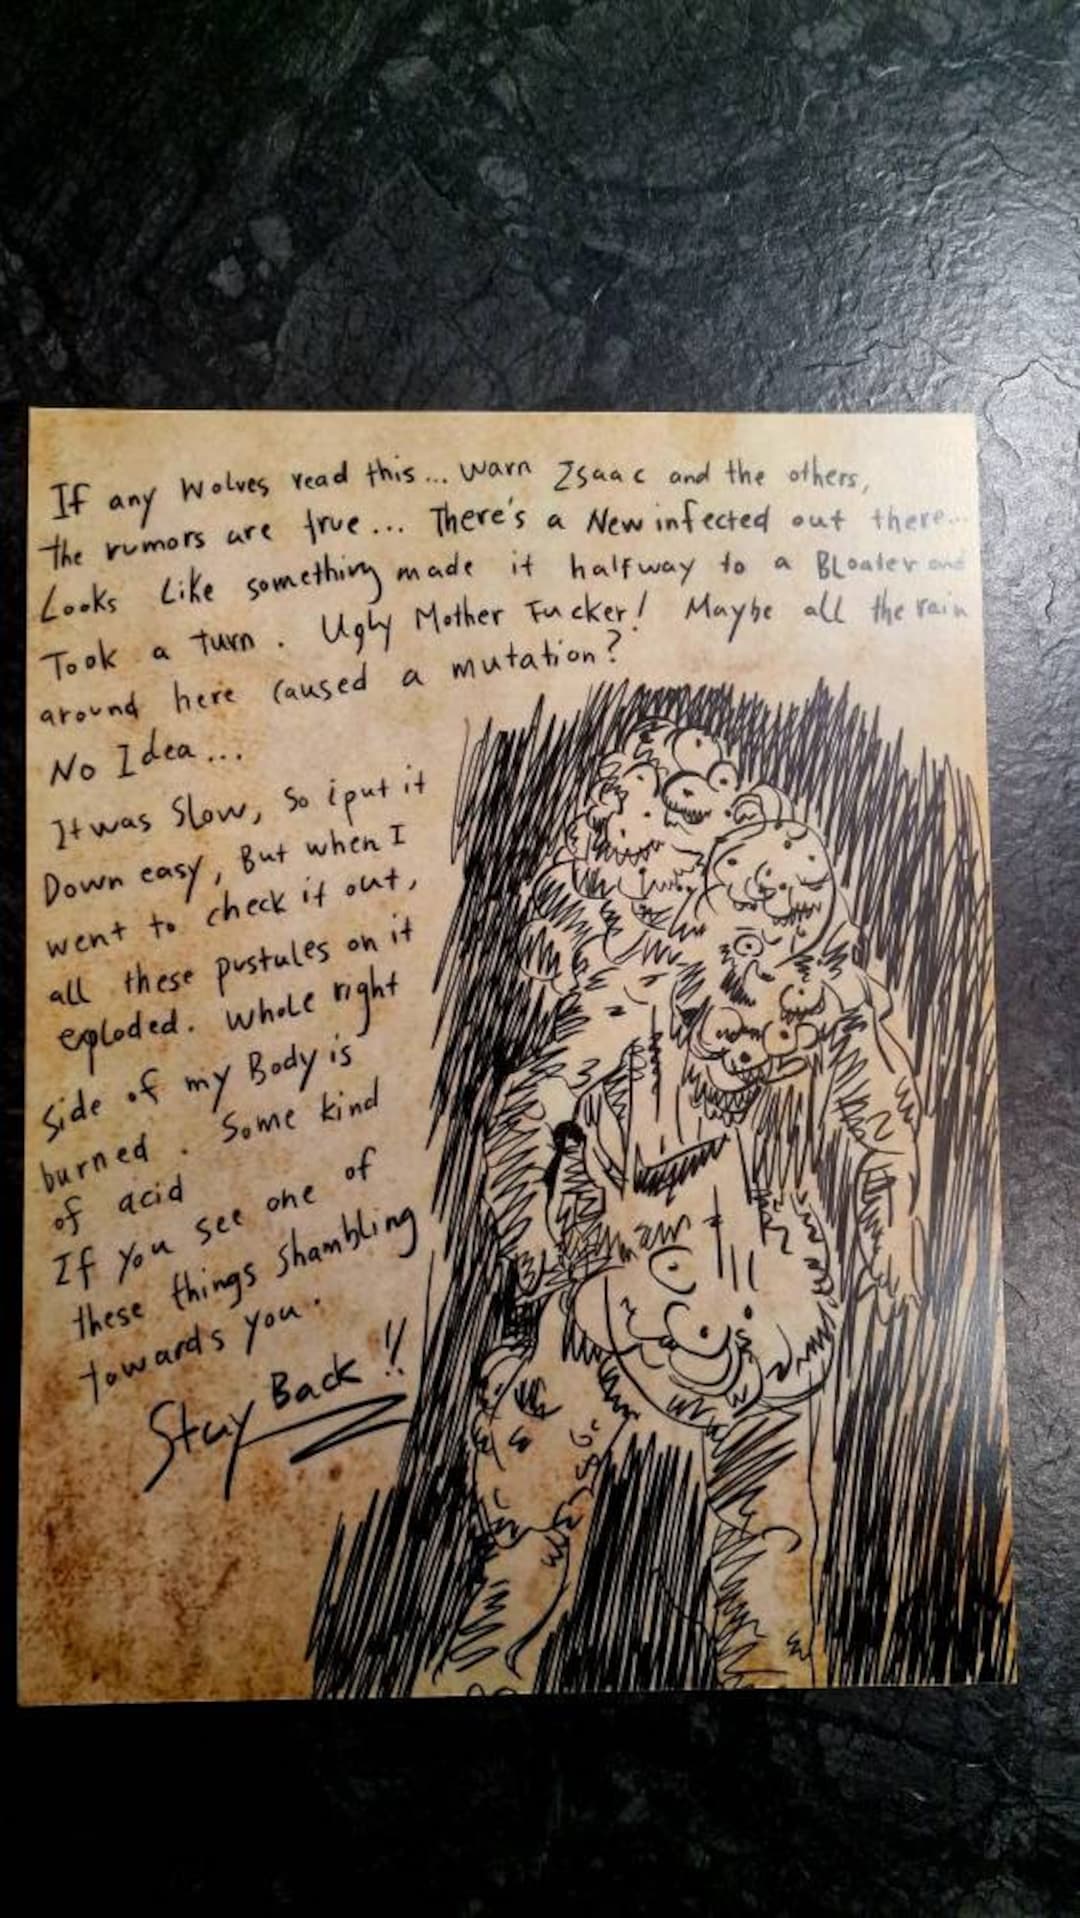 If any Wolves read this... Warn Isaac and the others,
the rumors are true... There's a New infected out there...
Looks Like something made it halfway to a Bloater and
Took a turn. Ugly Mother Fucker! Maybe all the rain
around here caused a mutation?
No Idea...
It was Slow, So i put it
Down easy, But when I
went to check it out,
all these pustules on it
exploded. Whole right
side of my Body is
burned. Some kind
of acid
If you see one of
these things shambling
towards you.
Stay Back!!